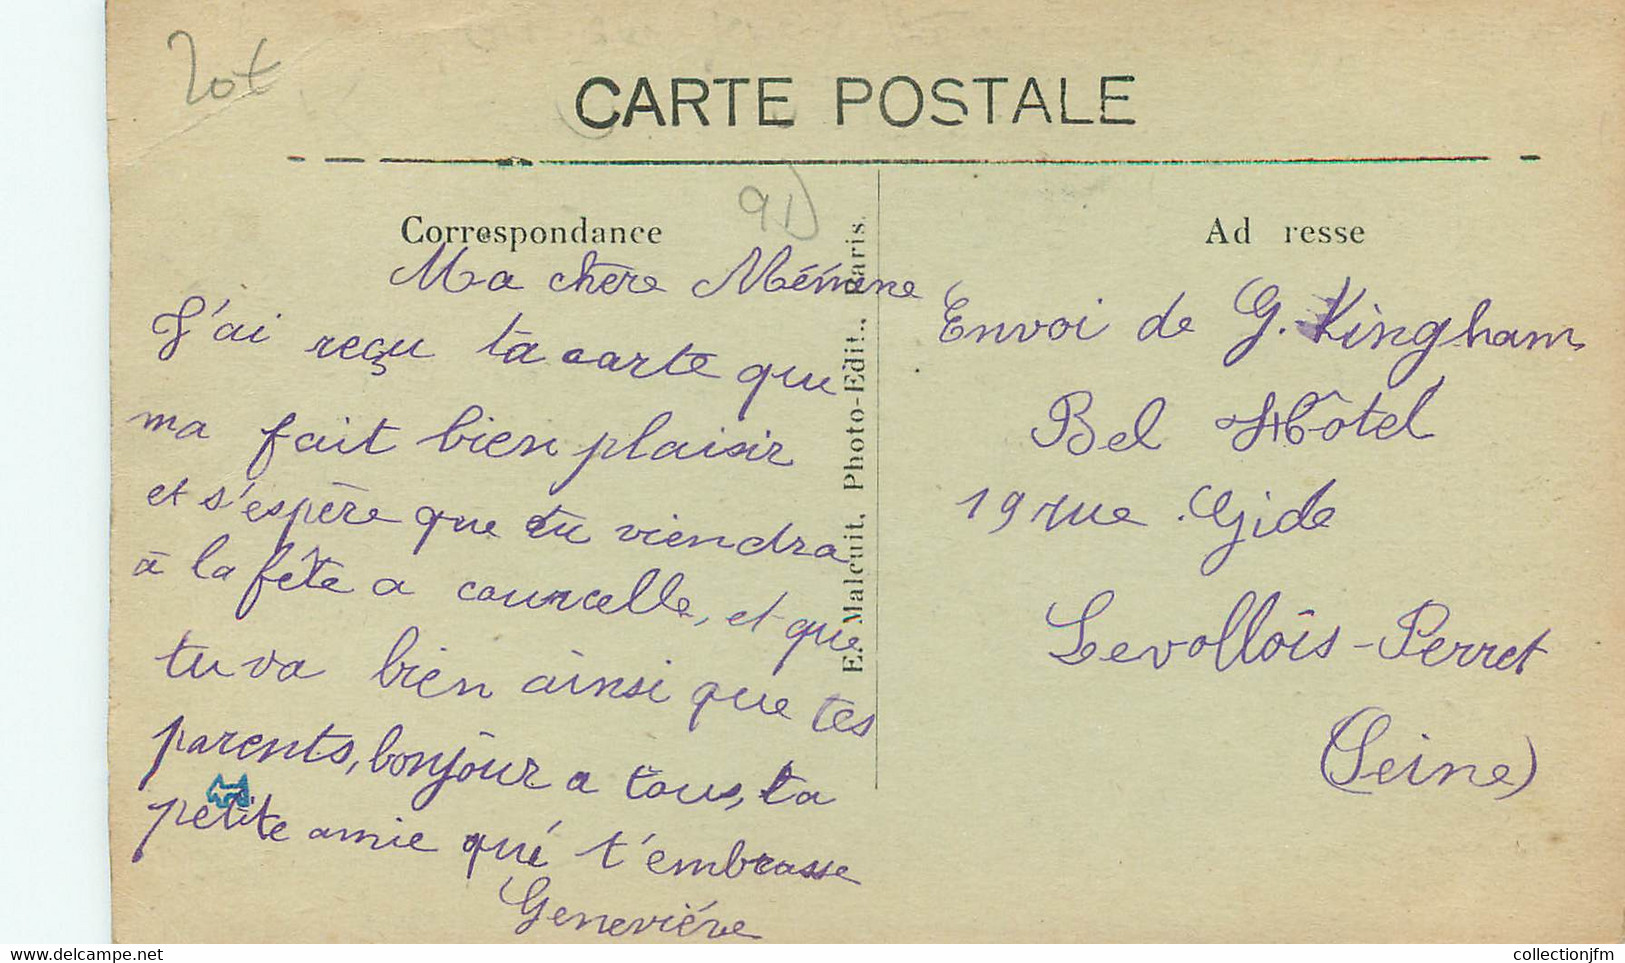 20t
CARTE POSTALE
91
Correspondance
Ma chère Mémène
J'ai reçu ta carte que
ma fait bien plaisir
et s'espère que tu viendra
à la fête a courcelle, et que
tu va bien ainsi que tes
parents, bonjour a tous, ta
petite amie qui t'embrasse
Geneviève
E. Malcuit, Photo-Edit., Paris.
Ad resse
Envoi de G. Kingham
Bel Hôtel
19 rue Gide
Levolloîs-Perret
(Seine)
www.delcampe.net
collectionjfm